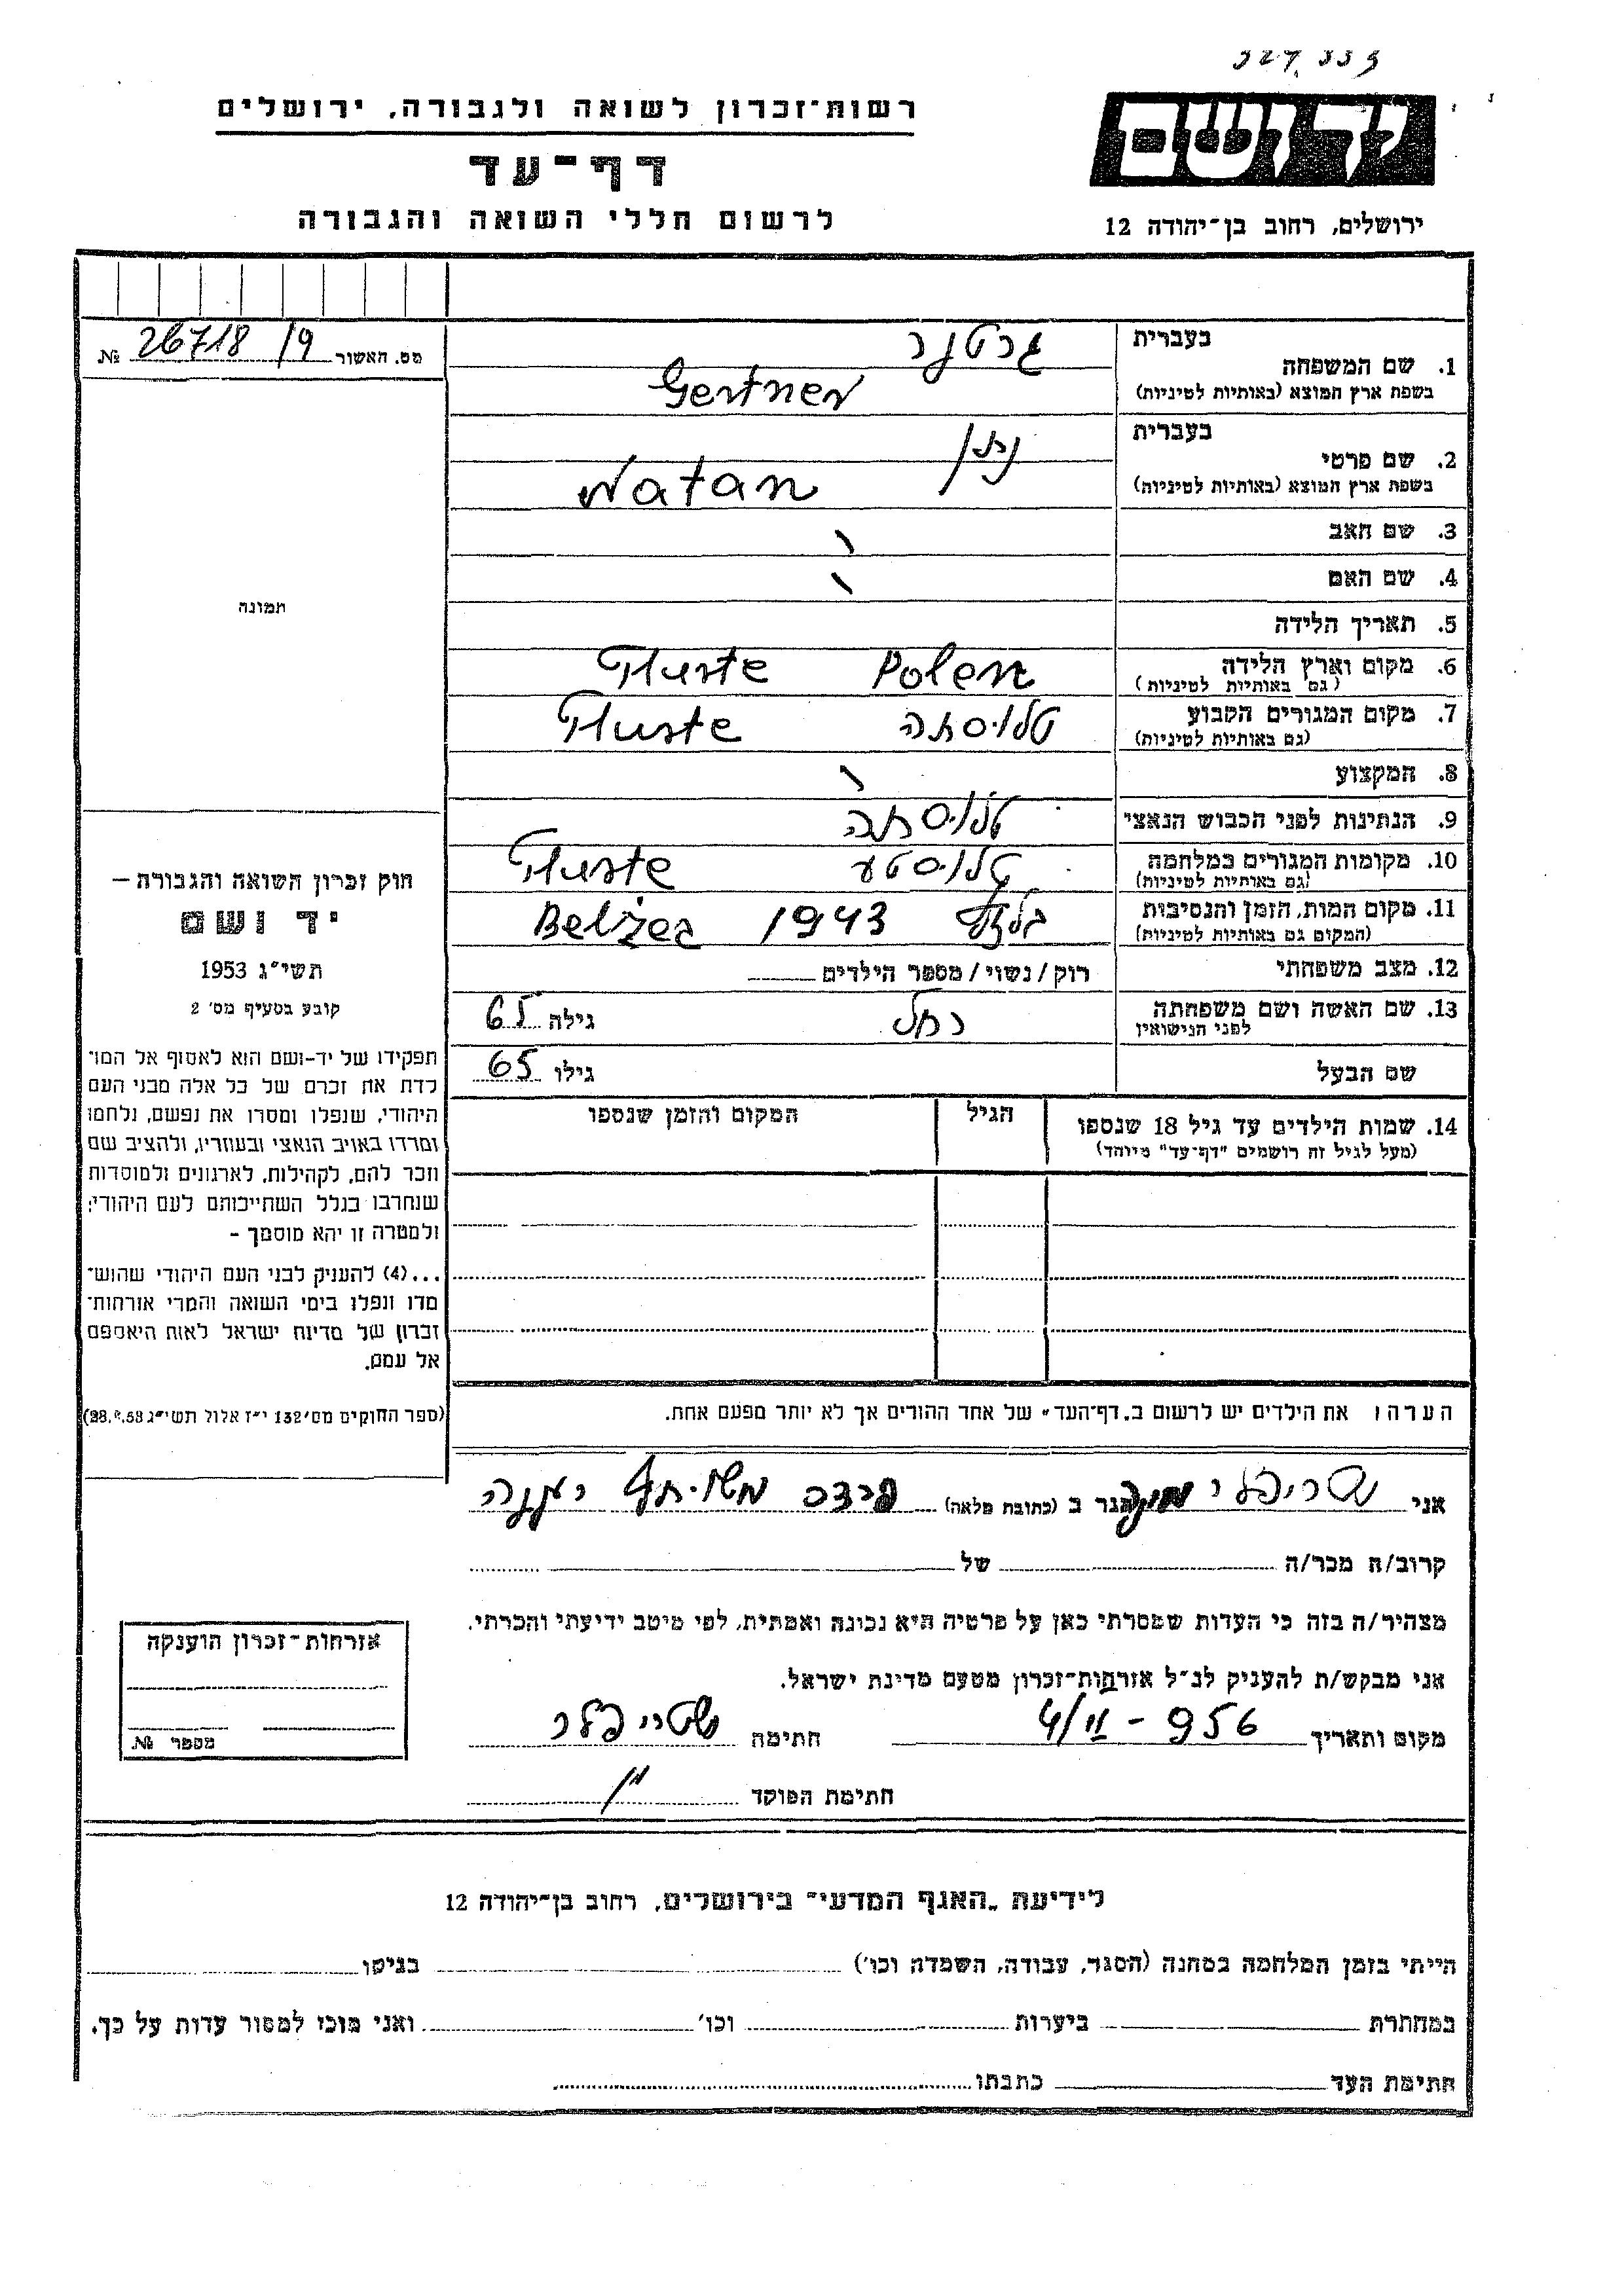 327,333
יד ושם
רשות־זכרון לשואה ולגבורה, ירושלים
דף־עד
לרשום חללי השואה והגבורה
ירושלים, רחוב בן־יהודה 12
מס. האשור 26718/9 №
בעברית גרטנר
1. שם המשפחה
בשפת ארץ המוצא (באותיות לטיניות) Gertner
בעברית נתן
2. שם פרטי
בשפת ארץ המוצא (באותיות לטיניות) Natan
3. שם האב
4. שם האם
5. תאריך הלידה
6. מקום וארץ הלידה Tluste Polen
(גם באותיות לטיניות)
7. מקום המגורים הקבוע טלוסתה Tluste
(גם באותיות לטיניות)
8. המקצוע
9. הנתינות לפני הכבוש הנאצי טלוסתה
10. מקומות המגורים במלחמה טלוסטע Tluste
(גם באותיות לטיניות)
11. מקום המות, הזמן והנסיבות 1943 Belżec
(המקום גם באותיות לטיניות)
12. מצב משפחתי רוק/נשוי/מספר הילדים
13. שם האשה ושם משפחתה רחל גילה 65
לפני הנישואין
שם הבעל גילו 65
14. שמות הילדים עד גיל 18 שנספו הגיל המקום והזמן שנספו
(מעל לגיל זה רושמים "דף־עד" מיוחד)
הערה: את הילדים יש לרשום ב„דף־העד" של אחד ההורים אך לא יותר מפעם אחת.
תמונה
חוק זכרון השואה והגבורה —
יד ושם
תשי״ג 1953
קובע בסעיף מס׳ 2
תפקידו של יד-ושם הוא לאסוף אל המו־
לדת את זכרם של כל אלה מבני העם
היהודי, שנפלו ומסרו את נפשם, נלחמו
ומרדו באויב הנאצי ובעוזריו, ולהציב שם
וזכר להם, לקהילות, לארגונים ולמוסדות
שנחרבו בגלל השתייכותם לעם היהודי;
ולמטרה זו יהא מוסמך -
...(4) להעניק לבני העם היהודי שהוש־
מדו ונפלו בימי השואה והמרי אזרחות־
זכרון של מדינת ישראל לאות היאספם
אל עמם.
(ספר החוקים מס׳ 132 י״ז אלול תשי״ג 28.8.53)
אני הגר ב (כתובת מלאה) פרדס משותף רעננה
קרוב/ה מכר/ה של
מצהיר/ה בזה כי העדות שמסרתי כאן על פרטיה היא נכונה ואמתית, לפי מיטב ידיעתי והכרתי.
אני מבקש/ת להעניק לנ״ל אזרחות־זכרון מטעם מדינת ישראל.
מקום ותאריך 4/II - 956 חתימה
חתימת הפוקד
אזרחות־זכרון הוענקה
מספר №
לידיעת „האגף המדעי" בירושלים, רחוב בן־יהודה 12
הייתי בזמן המלחמה במחנה (הסגר, עבודה, השמדה וכו׳) בגיטו
במחתרת ביערות וכו׳ ואני מוכן למסור עדות על כך.
חתימת העד כתבתו